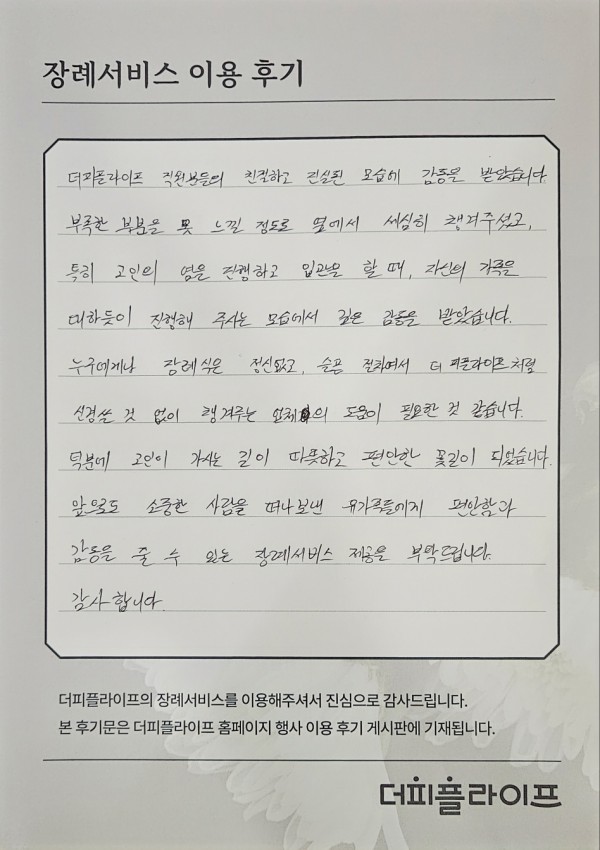 장례서비스 이용 후기
더피플라이프 직원분들의 친절하고 진실된 모습에 감동을 받았습니다.
부족한 부분을 못 느낄 정도로 옆에서 세심히 챙겨주셨고,
특히 고인의 염을 진행하고 입관을 할 때, 자신의 가족을
대하듯이 진행해 주시는 모습에서 깊은 감동을 받았습니다.
누구에게나 장례식은 정신없고, 슬픈 절차여서 더피플라이프처럼
신경쓸 것 없이 챙겨주는 업체의 도움이 필요한 것 같습니다.
덕분에 고인이 가시는 길이 따뜻하고 편안한 꽃길이 되었습니다.
앞으로도 소중한 사람을 떠나보낸 유가족들에게 편안함과
감동을 줄 수 있는 장례서비스 제공을 부탁드립니다.
감사합니다.
더피플라이프의 장례서비스를 이용해주셔서 진심으로 감사드립니다.
본 후기문은 더피플라이프 홈페이지 행사 이용 후기 게시판에 기재됩니다.
더피플라이프